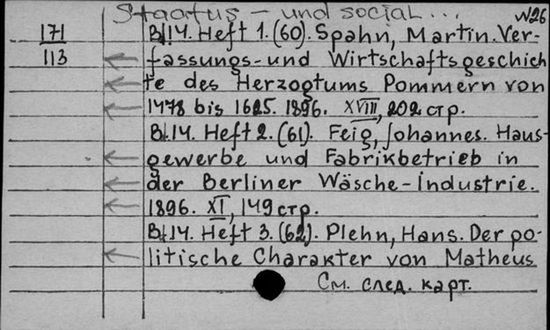 Staatus – und social... N26
171
113
Bd 14. Heft 1. (60). Spahn, Martin. Ver-
fassungs- und Wirtschaftsgeschich
te des Herzogtums Pommern von
1478 bis 1625. 1896. XVIII, 202 стр.
Bd 14. Heft 2. (61). Feig, Johannes. Haus-
gewerbe und Fabrikbetrieb in
der Berliner Wäsche-Industrie.
1896. XI, 149 стр.
Bd 14. Heft 3. (62). Plehn, Hans. Der po-
litische Charakter von Matheus
См. след. карт.